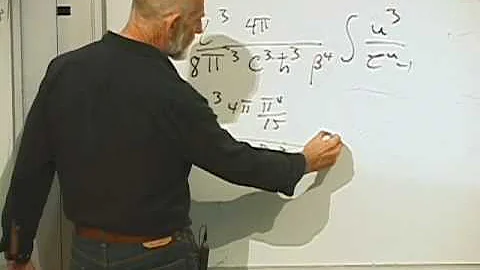 L³ 4π / 8π³ c³ ħ³ β⁴ ∫ u³ / eᵘ-1
³ 4π π⁴ / 15